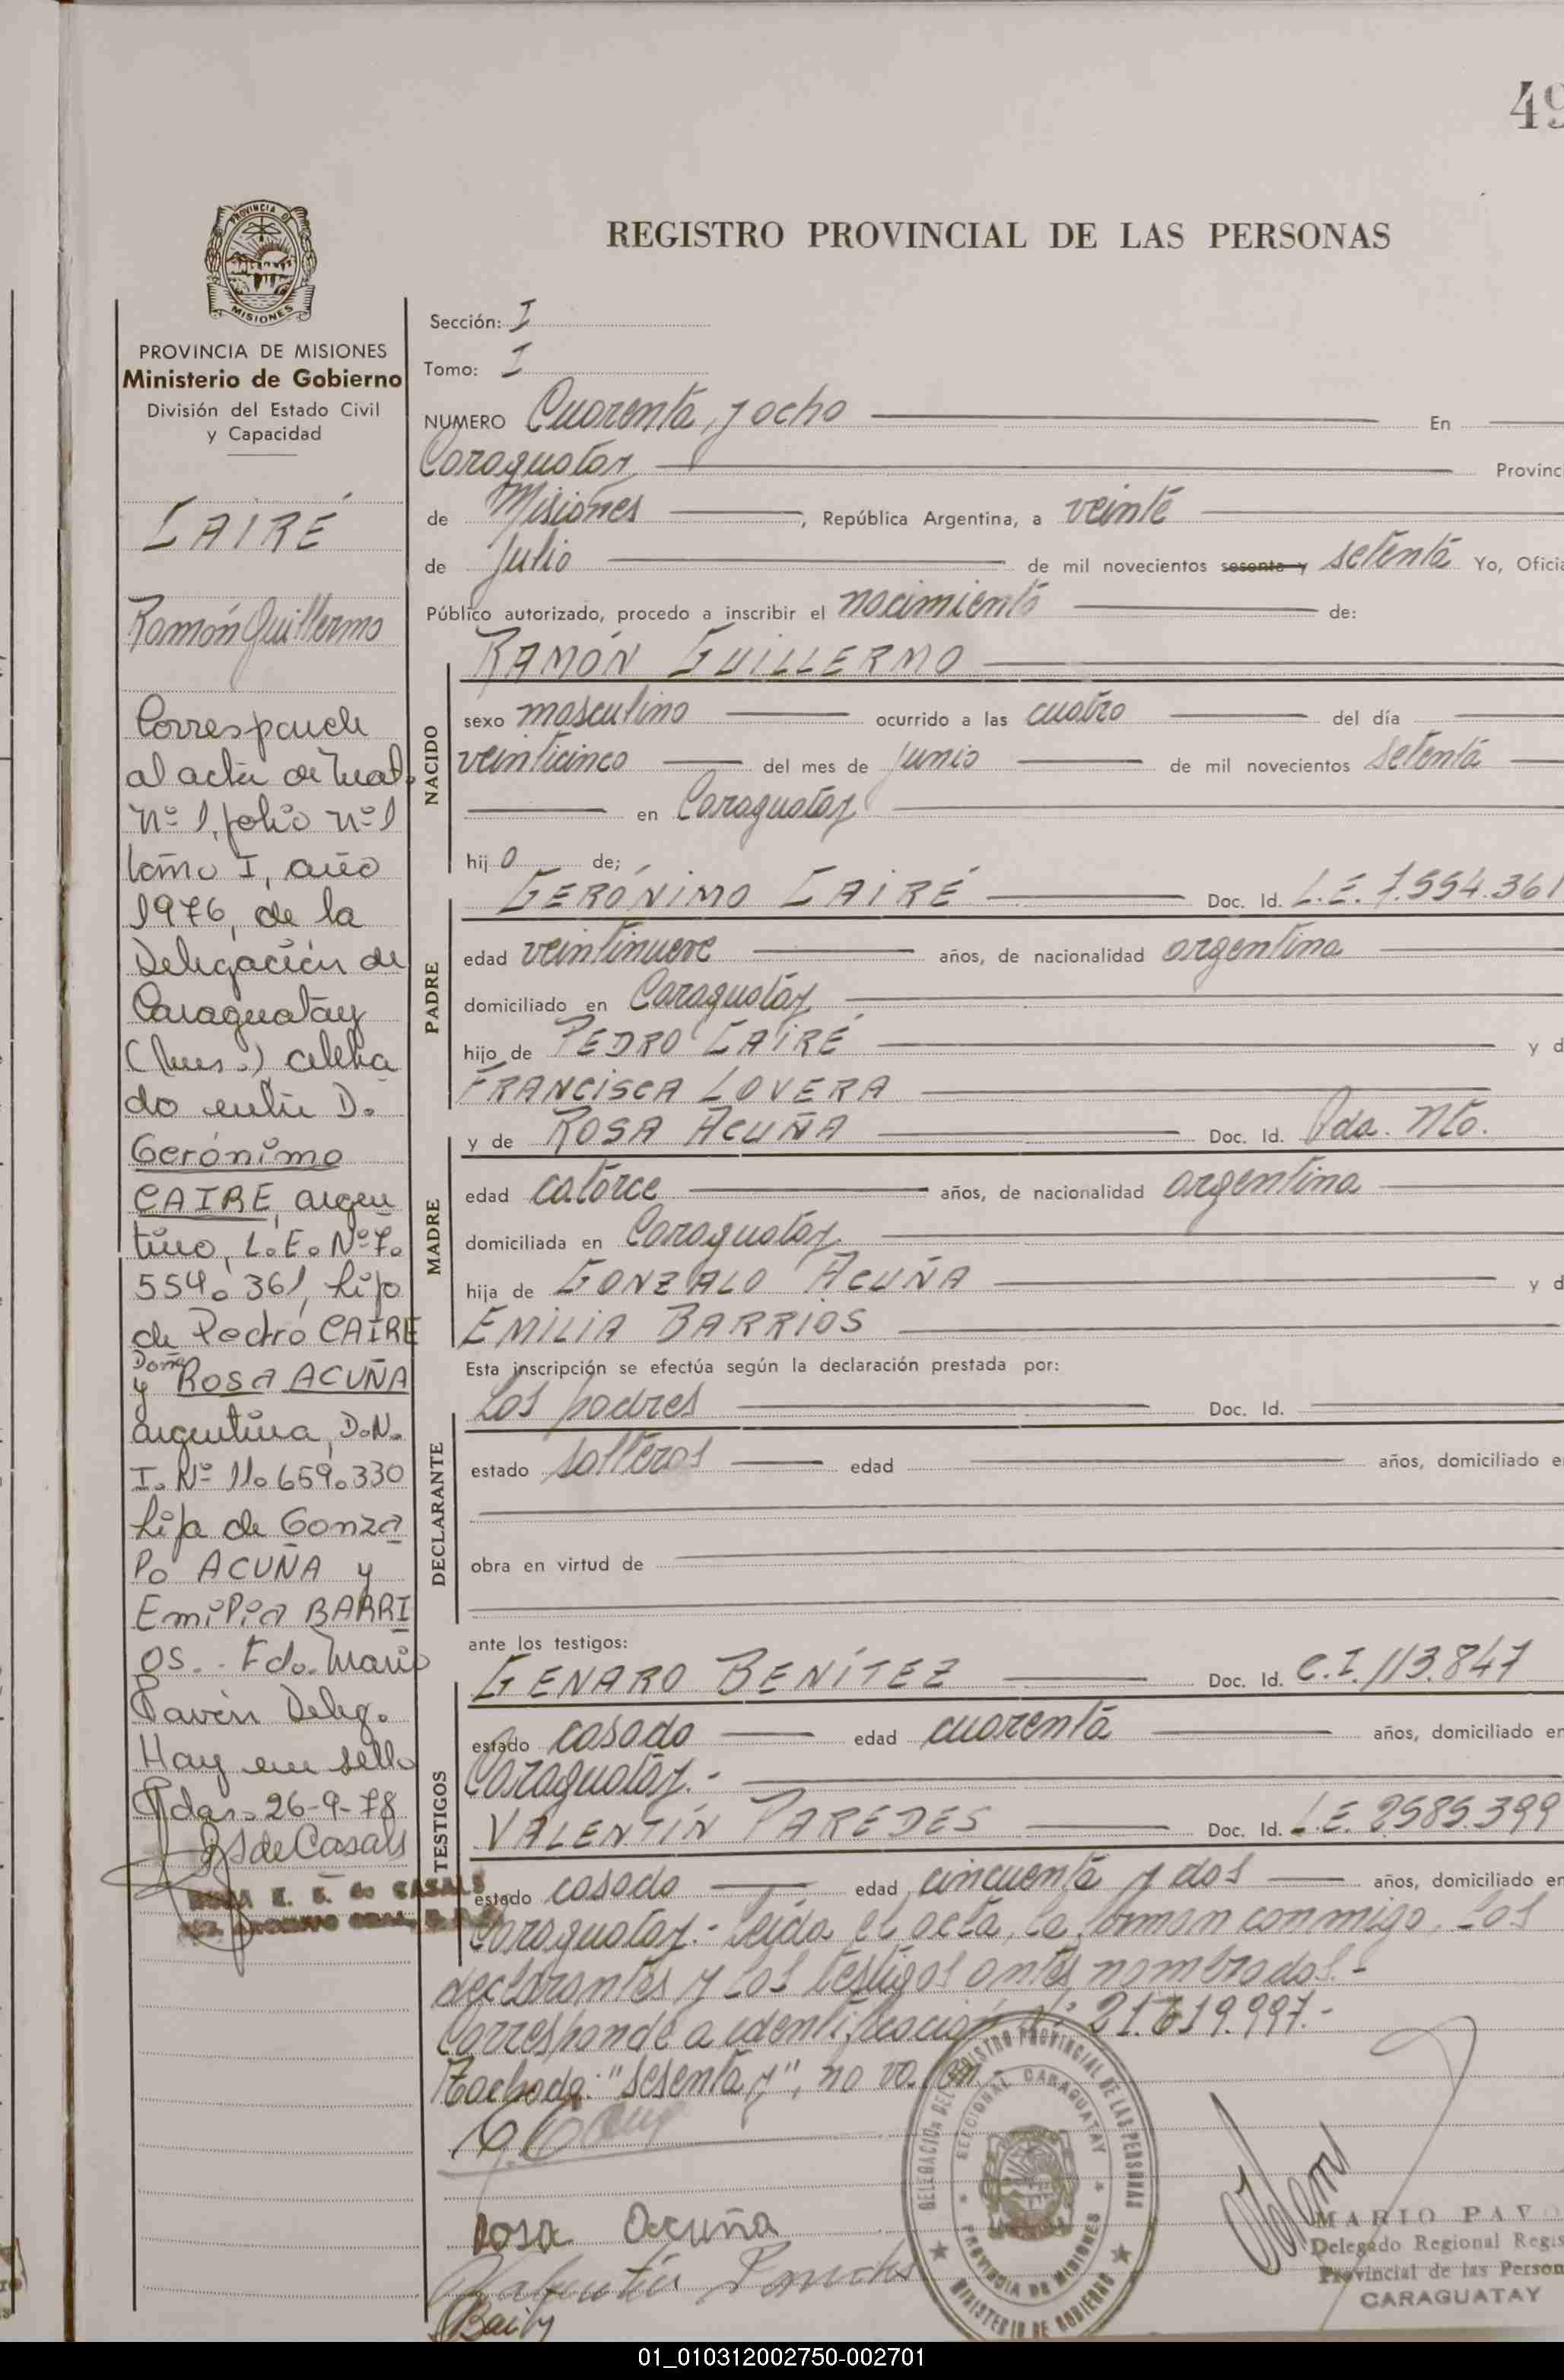 49
REGISTRO PROVINCIAL DE LAS PERSONAS
PROVINCIA DE MISIONES
Ministerio de Gobierno
División del Estado Civil
y Capacidad
CAIRÉ
Ramón Guillermo
Corresponde
al acta de Mat.
Nº 1, folio Nº 1
tomo I, año
1976, de la
Delegación de
Caraguatay
(Mnes.) celebra
do entre D.
Gerónimo
CAIRE, argen
tino, L.E. Nº 7.
554.361, hijo
de Pedro CAIRE
y Doña ROSA ACUÑA
argentina, D.N.
I. Nº 11.659.330
hija de Gonza
lo ACUÑA y
Emilia BARRI
OS.- Fdo. Mario
Pavón Deleg.
Hay un sello
Pdas. 26-9-78
de Casals
E. S. de CASALS
ARCHIVO GRAL.
Sección: I
Tomo: I
NUMERO Cuarenta y ocho En
Caraguatay Provinc
de Misiones, República Argentina, a veinte
de Julio de mil novecientos sesenta y setenta Yo, Oficia
Público autorizado, procedo a inscribir el nacimiento de:
RAMÓN GUILLERMO
NACIDO
sexo masculino ocurrido a las cuatro del día
veinticinco del mes de junio de mil novecientos setenta
en Caraguatay
hij o de;
GERÓNIMO CAIRÉ Doc. Id. L.E. 7.554.361
PADRE
edad veintinueve años, de nacionalidad argentina
domiciliado en Caraguatay
hijo de PEDRO CAIRÉ y d
FRANCISCA LOVERA
y de ROSA ACUÑA Doc. Id. Pda. Nto.
MADRE
edad catorce años, de nacionalidad argentina
domiciliada en Caraguatay.
hija de GONZALO ACUÑA y d
EMILIA BARRIOS
Esta inscripción se efectúa según la declaración prestada por:
Los padres Doc. Id.
DECLARANTE
estado solteros edad años, domiciliado e
obra en virtud de
ante los testigos:
GENARO BENÍTEZ Doc. Id. C.I. 113.847
TESTIGOS
estado casado edad cuarenta años, domiciliado en
Caraguatay.-
VALENTÍN PAREDES Doc. Id. L.E. 2585.399
estado casado edad cincuenta y dos años, domiciliado en
Caraguatay.- Leída el acta, la firman conmigo, los
declarantes y los testigos antes nombrados.-
Corresponde a identificación Nº 21.619.997.-
Tachado: "sesenta y", no va.
Rosa Acuña
DELEGACION DEL REGISTRO PROVINCIAL DE LAS PERSONAS
SECCIONAL CARAGUATAY
PROVINCIA DE MISIONES
MINISTERIO DE GOBIERNO
MARIO PAVO
Delegado Regional Regis
Provincial de las Person
CARAGUATAY
01_010312002750-002701